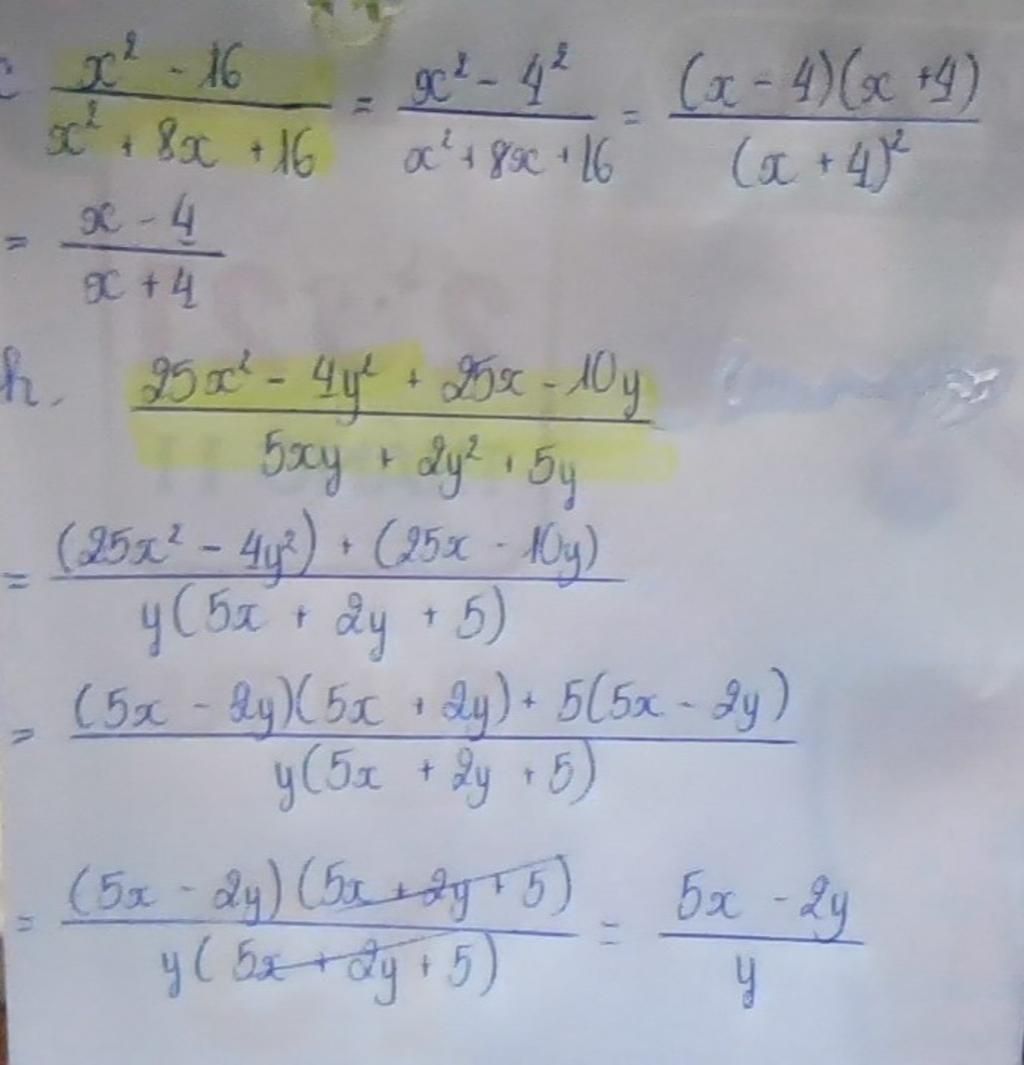 c x² - 16 / x² + 8x + 16 = x² - 4² / x² + 8x + 16 = (x - 4)(x + 4) / (x + 4)²
= x - 4 / x + 4
h. 25x² - 4y² + 25x - 10y / 5xy + 2y² + 5y
= (25x² - 4y²) + (25x - 10y) / y(5x + 2y + 5)
= (5x - 2y)(5x + 2y) + 5(5x - 2y) / y(5x + 2y + 5)
= (5x - 2y)(5x + 2y + 5) / y(5x + 2y + 5) = 5x - 2y / y